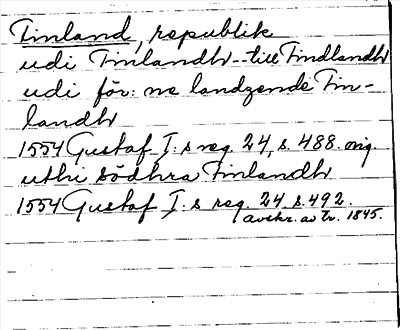 Finland, republik
udi Finlandh - - till Findlandh
udi för: ne landzende Fin-
landh
1554 Gustaf I:s reg. 24, s. 488. orig.
uthi södhra Finlandh
1554 Gustaf I:s reg. 24, s. 492.
avskr. av tr. 1845.